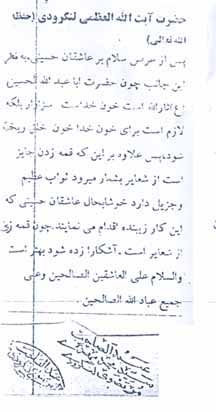 حضرت آیت الله العظمی لنگرودی (حفظه
الله تعالی)
پس از عرض سلام بر عاشقان حسینی به نظر
این جانب چون حضرت ابا عبد الله الحسین
(ع) ثارالله است خون خداست سزاوار بلکه
لازم است برای خون خدا خون خلق ریخته
شود، پس علاوه بر این که قمه زدن جایز
است از شعایر بشمار میرود ثواب عظیم
وجزیل دارد خوشابحال عاشقان حسینی که
این کار زیبنده اقدام می نمایند. چون قمه زنی
از شعایر است . آشکارا زده شود بهتر است
والسلام علی العاشقین الصالحین وعلی
جمیع عباد الله الصالحین.